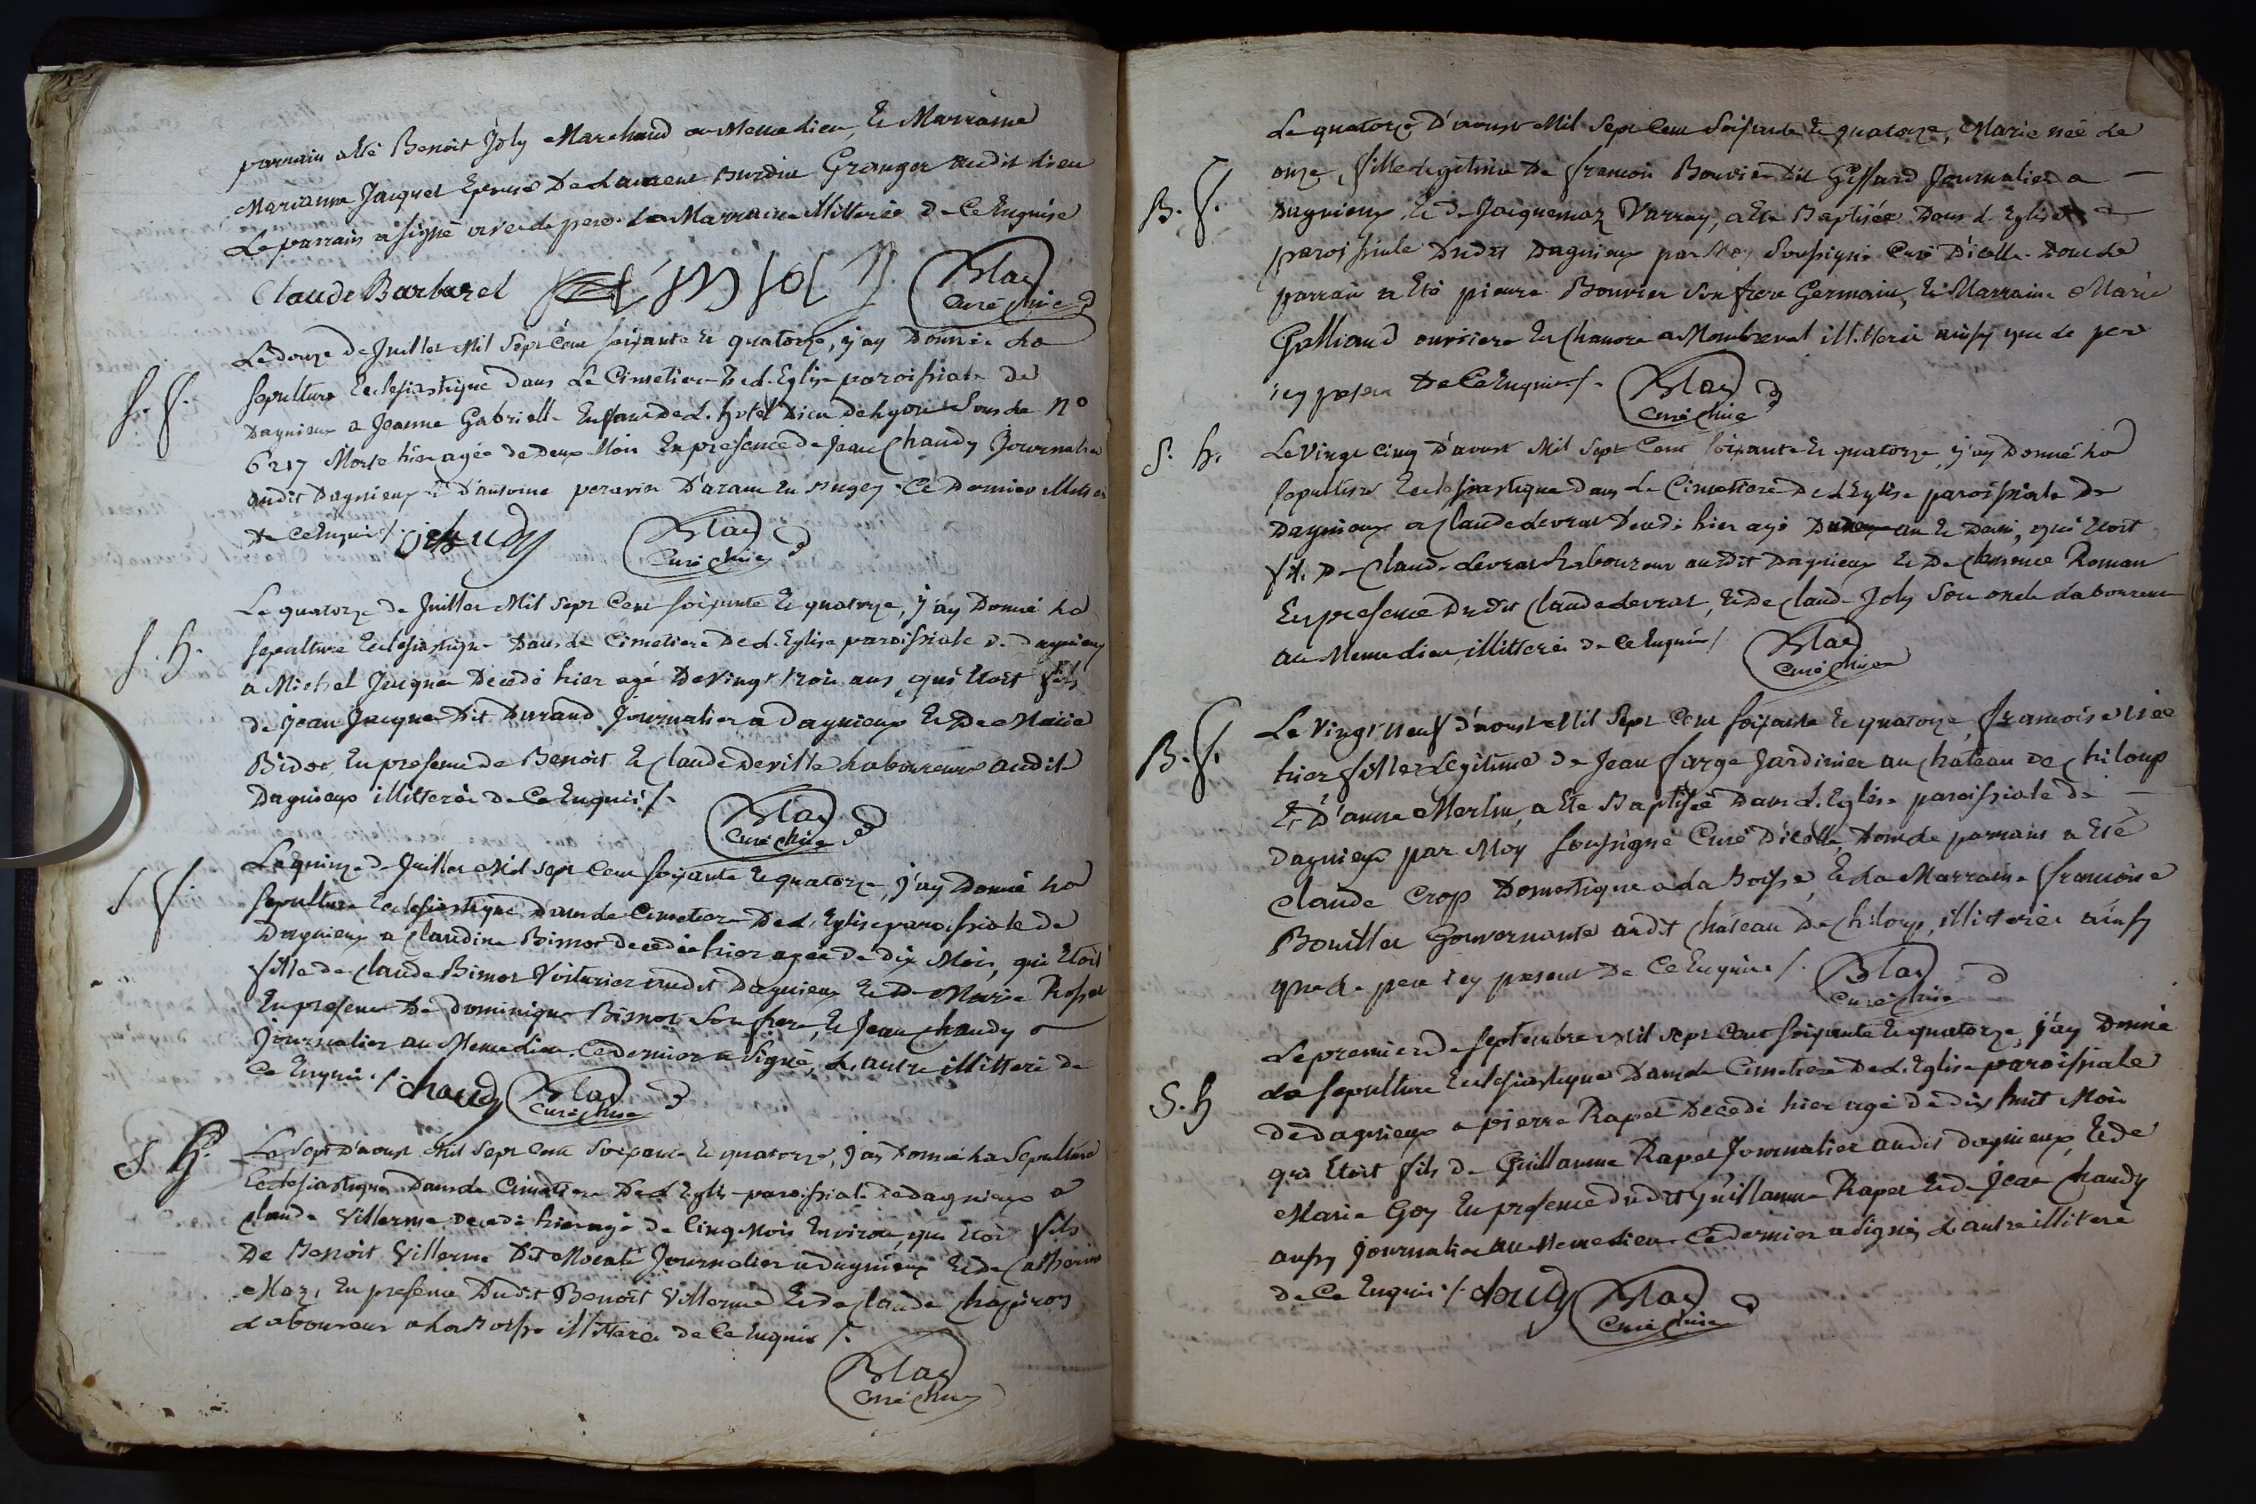 parrain a été Benoit Joly Marchand au Meme Lieu, et Marraine
Marianne Jacquet Epouse De Laurent Burdin Granger audit Lieu
Le parrain a signé avec le pere. La Marraine illitterée de Ce Enquise
Claude Barbaret Blay
Curé
Le douze de Juillet Mil Sept Cent soixante et quatorze, j'ay Donné La
S. f. sepulture Ecclesiastique Dans Le Cimetiere De L'Eglise paroissiale de
Dagnieux a Jeanne Gabrielle Enfant de L'hotel Dieu de Lyon sous Le N°
6217 Morte hier agée de Deux Mois En presence de Jean Chaudy Journalier
audit Dagnieux et d'antoine D'aram En Bugey Ce Dernier
de Ce Enquis /. chaudy Blay
Curé
Le quatorze de Juillet Mil Sept Cent soixante et quatorze, j'ay Donné La
S. h. sepulture Ecclesiastique Dans Le Cimetiere De L'Eglise paroissiale de dagnieux
a Michel Jacquet Decedé hier agé De vingt trois ans, qui Etoit fils
de jean Jacquet Dit Durand Journalier a Dagnieux et De Marie
Bidot, En presence de Benoit et Claude Deville Laboureurs audit
Dagnieux illitterés de Ce Enquis /.
Blay
Curé
Le quinze de Juillet Mil sept Cent soixante et quatorze, j'ay Donné La
S f. sepulture Ecclesiastique Dans Le Cimetiere De L'Eglise paroissiale de
Dagnieux a Claudine Bimot decedée hier agée de dix Mois, qui Etoit
fille de Claude Bimot Voiturier audit Dagnieux et De Marie
En presence De dominique Bimot Son frere, et Jean Chaudy
Journalier au Meme Lieu. Ce dernier a signé, L'autre illitteré de
Ce Enquis /. chaudy Blay
Curé
S. h. Le Sept D'aoust Mil Sept Cent Soixante et quatorze, j'ay Donné La Sepulture
Ecclesiastique Dans Le Cimetiere De L'Eglise paroissiale de dagnieux a
Claude Villerme decedé hier agé de Cinq Mois Environ, qui Etoit fils
De Benoit Villerme Dit Journalier a Dagnieux et de Catherine
En presence Dudit Benoit Villerme et de Claude Chapiron
Laboureur a La Boisse illitterés de Ce Enquis /.
Blay
Curé
Le quatorze D'aoust Mil Sept Cent Soixante et quatorze, Marie née Le
onze, fille Legitime De francois Bouvier dit Giffard Journalier a
B. f. Dagnieux et de Jacquemaz Varray, a Eté Baptisée Dans L'Eglise
paroissiale Dudit Dagnieux par Moy Soussigné Curé D'icelle. Dont Le
parrain a Eté pierre Bouvier Son frere Germain, et Marraine Marie
Galliand ouvriere En Chanvre a Montrevel illitterée ainsy que Le pere
icy present De Ce Enquis /. Blay
Curé
S. h. Le Vingt Cinq D'aoust Mil Sept Cent soixante et quatorze, j'ay Donné La
sepulture Ecclesiastique Dans Le Cimettiere De L'Eglise paroissiale De
Dagnieux a Claude Levrat Decedé hier agé D'un an et Demi, qui Etoit
fils De Claude Levrat Laboureur audit Dagnieux et De Clemence Roman
En presence Dudit Claude Levrat, et De Claude Joly Son oncle Laboureur
au Meme Lieu, illitterés de Ce Enquis /. Blay
Curé
B. f. Le Vingt Neuf d'aoust Mil Sept Cent soixante et quatorze, francoise Née
hier fille Legitime de Jean farge Jardinier au Chateau de Chiloup
Et D'anne Merlin, a Eté Baptisée Dans L'Eglise paroissiale de
Dagnieux par Moy soussigné Curé D'icelle, Dont Le parrain a Eté
Claude Crop Domestique a La Boisse, et La Marraine francoise
Bouillet Gouvernante audit Château De Chiloup, illitterés ainsy
que Le pere icy present De Ce Enquis /. Blay
Curé
Le premier de septembre Mil sept Cent soixante et quatorze, j'ay Donné
S. h La sepulture Ecclesiastique Dans Le Cimetiere De L'Eglise paroissiale
de dagnieux a pierre Rapet Decedé hier agé de dix huit Mois
qui Etoit fils de Guillaume Rapet Journalier audit dagnieux, et de
Marie Goy En presence dudit Guillaume Rapet et de Jean Chaudy
aussy journalier au Meme Lieu Ce dernier a signé, L'autre illiteré
de Ce Enquis /. chaudy Blay
Curé